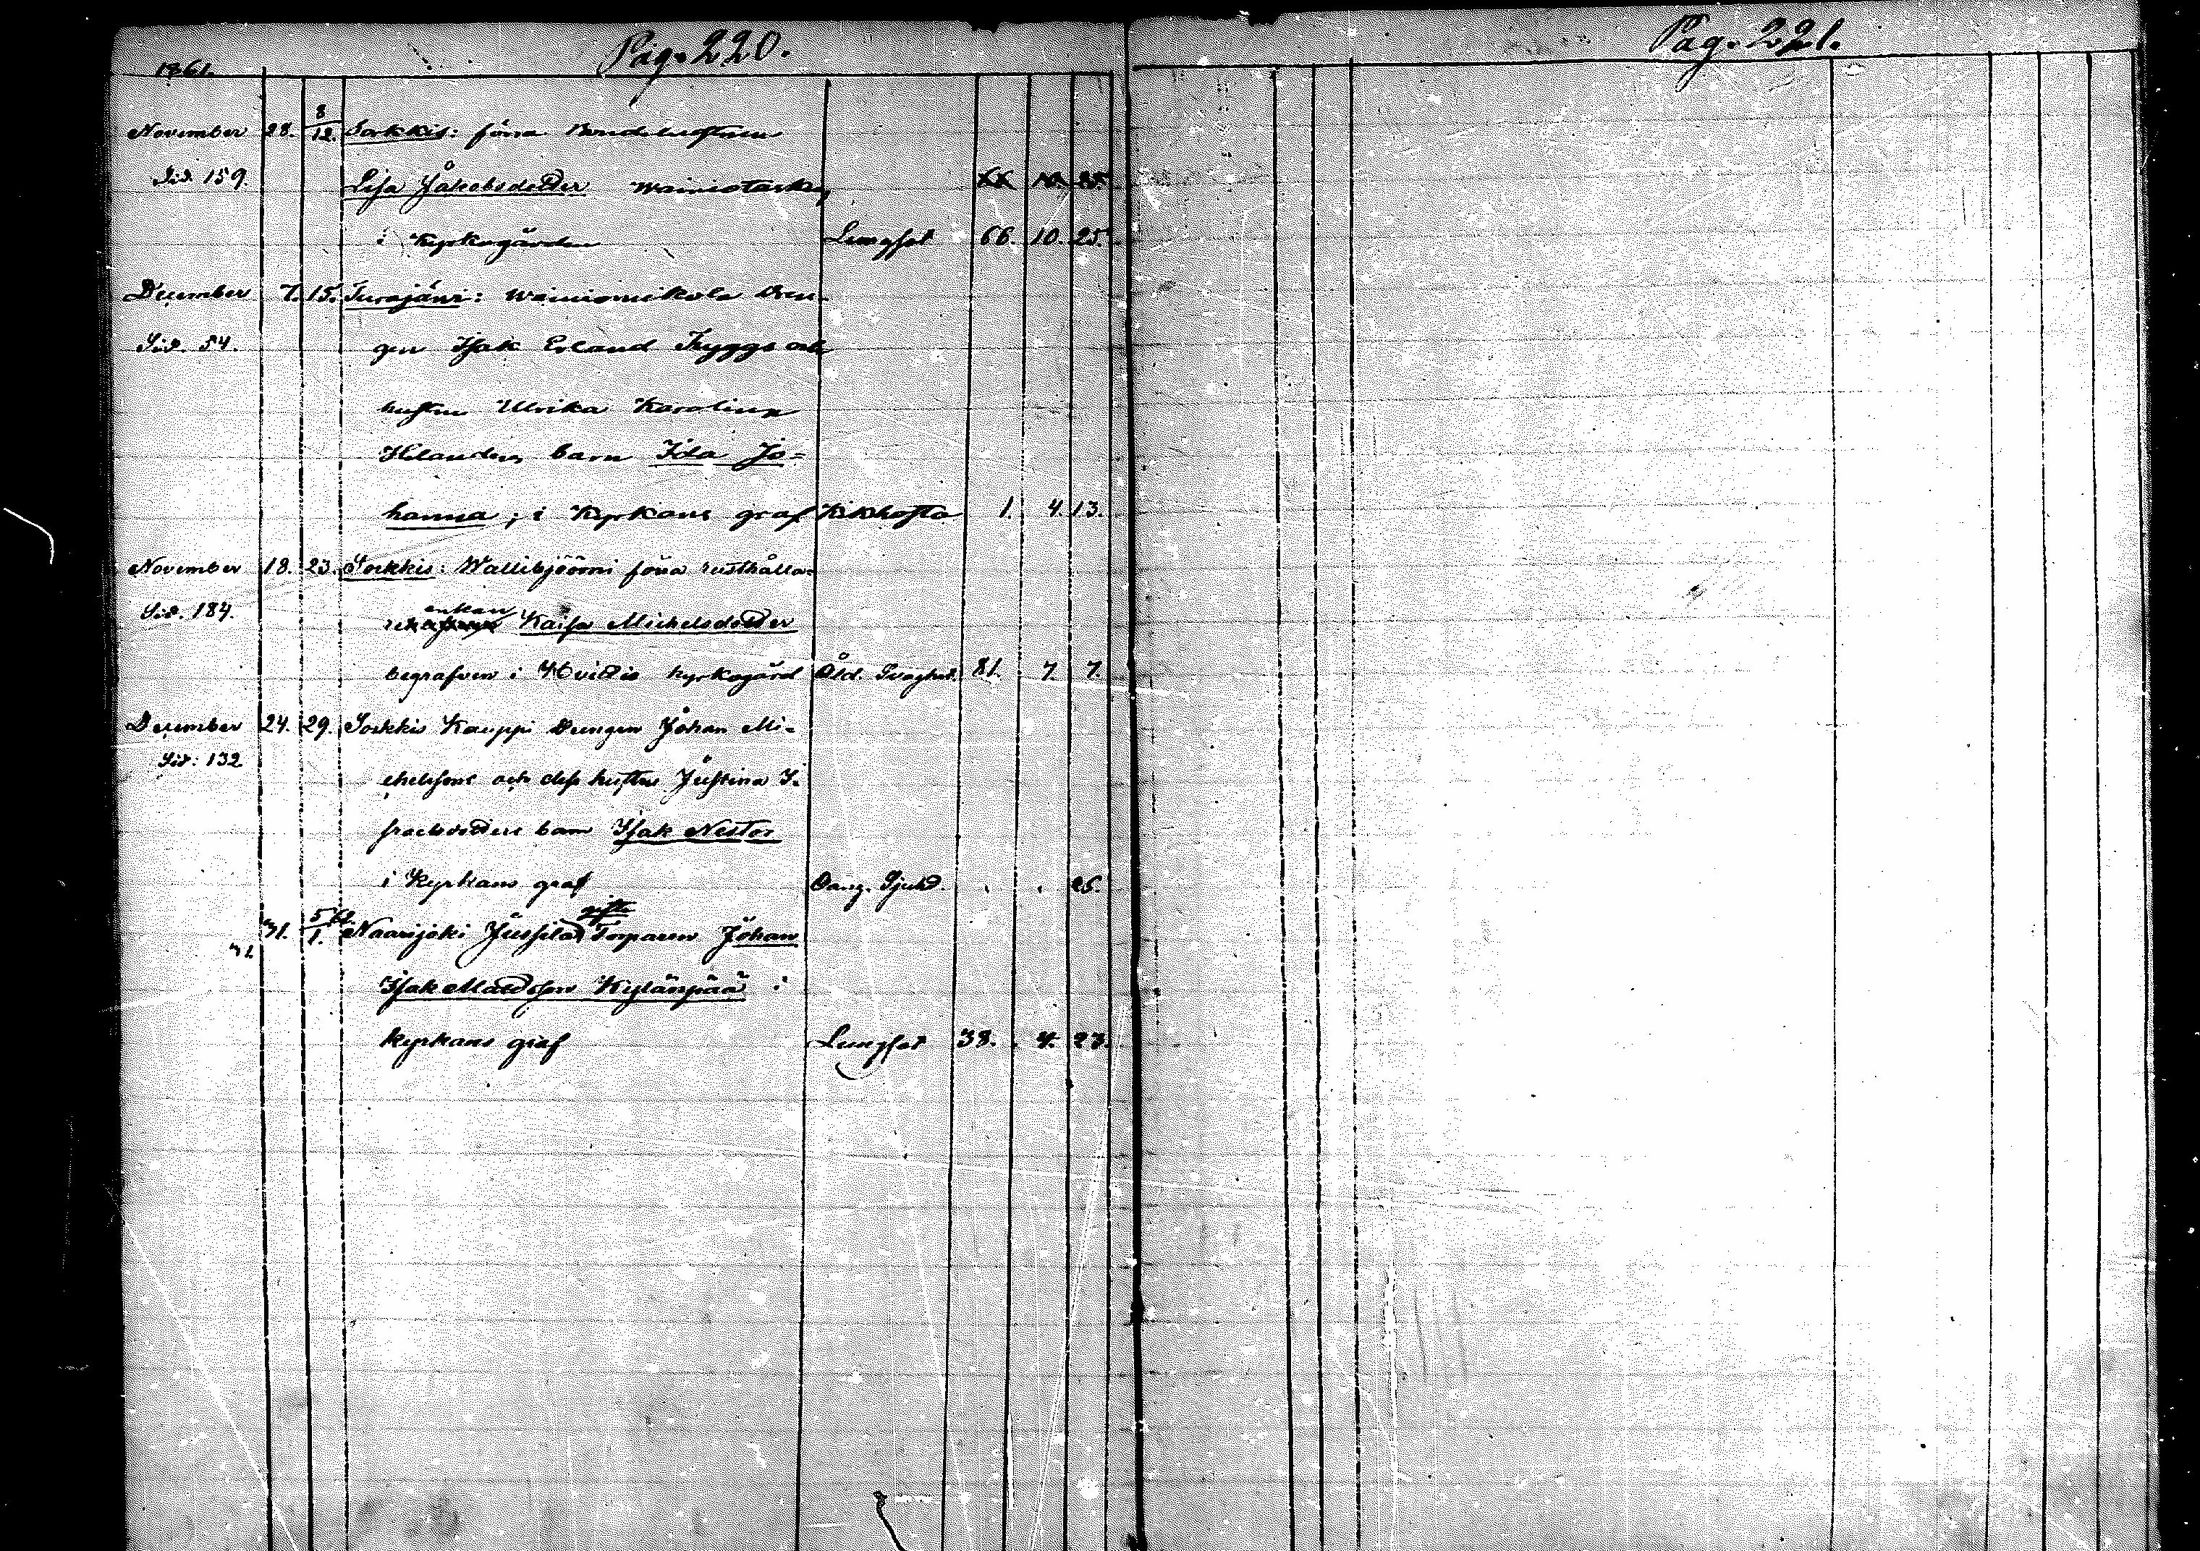 Pag. 220.
Pag. 221.
1861.
November 28. 8/12. Sorkkis: förra Bondehustrun
Sid. 159. Lisa Jakobsdotter Wainiotarkka XX 10. 25.
i Kyrkogården Lungsot 66. 10. 25.
December 7. 15. Turajärvi: Wainiomikola Dren-
Sid. 54. gen Isak Erland Tryggs och
hustru Ulrika Karolina
Helanders barn Ida Jo=
hanna; i Kyrkans graf Kikhosta 1. 4. 13.
November 18. 23. Sorkkis: Wallibjöörni förra rusthålla=
enkan
Sid. 184. re Kaisa Michelsdotter
begrafven i Hvittis kyrkogård Åld. Svaghet. 81. 7. 7.
December 24. 29. Sorkkis Kauppi Drengen Johan Mi-
Sid. 132 chelssons och dess hustru Justina I-
sracsdotters barn Isak Nestor
i Kyrkans graf Oang. Sjukd. . . 25.
gifte
31. 5/1. 62. Naarijoki Jussila Torparen Johan
Isak Mattsson Kylänpää i
kyrkans graf Lungsot 38. 4. 27.